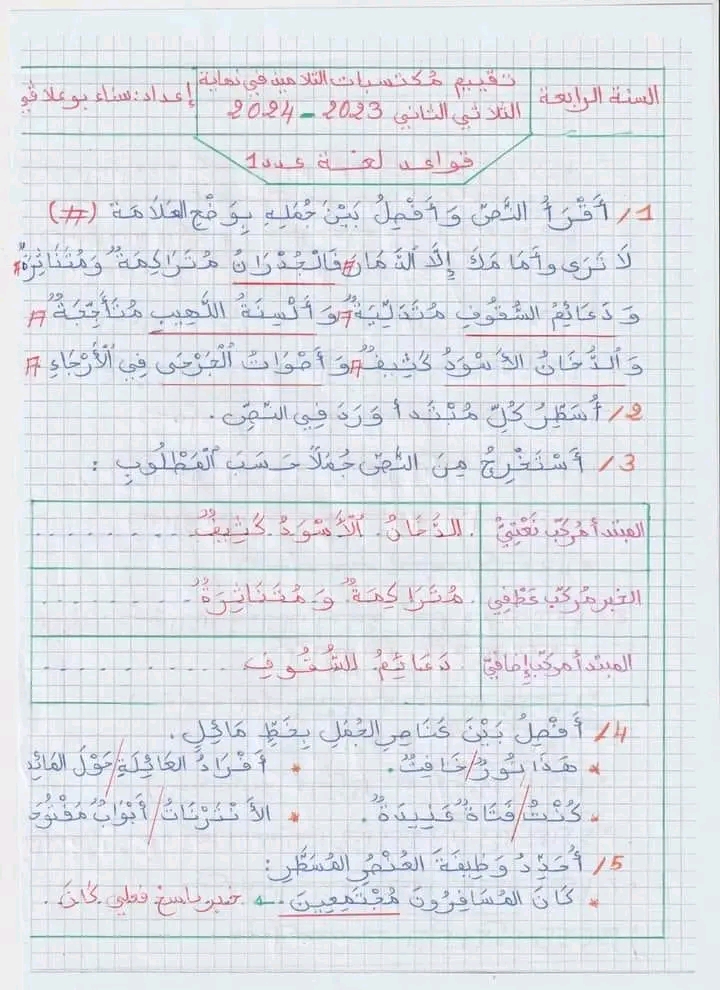 السنة الرابعة
تقييم مكتسبات التلاميذ في نهاية
الثلاثي الثاني 2023 - 2024
إعداد: سناء بوعلاقي
قواعد لغة عدد 1
1/ أَقْرَأُ النَّصَّ وَأَفْصِلُ بَيْنَ جُمَلِهِ بِوَضْعِ العَلَامَة (#)
لَا تَرَى وأَمَامَكَ إِلَّا الدَّمَارَ # فَالْجُدْرَانُ مُتَرَاكِمَةٌ وَمُتَنَاثِرَةٌ #
وَدَعَائِمُ السُّقُوفِ مُتَدَلِّيَةٌ # وَأَلْسِنَةُ اللَّهِيبِ مُتَأَجِّجَةٌ #
وَالدُّخَانُ الأَسْوَدُ كَثِيفٌ # وَأَصْوَاتُ الْجَرْحَى فِي الْأَرْجَاءِ #
2/ أُسَطِّرُ كُلَّ مُبْتَدأ وَرَدَ فِي النَّصِّ .
3/ أَسْتَخْرِجُ مِنَ النَّصِّ جُمَلًا حَسَبَ الْمَطْلُوبِ :
المبتدأ مُركّب نَعْتِيّ . الدُّخَانُ الْأَسْوَدُ كَثِيفٌ . . . . . . . . .
الخبر مُركّب عَطْفِي . مُتَرَاكِمَةٌ وَ مُتَنَاثِرَةٌ . . . . . . . . .
المبتدأ مركّب إضافيّ . دَعَائِمُ السُّقُوفِ . . . . . . . . .
4/ أَفْصِلُ بَيْنَ عَنَاصِرِ الجُمَلِ بِخَطٍّ مَائِلٍ .
* هَذَا نُورٌ / خَافِتٌ . * أَفْرَادُ العَائِلَةِ / حَوْلَ المَائِد
* كُنْتُ / فَتَاةً عَنِيدَةً . * الأَنْتَرْنَاتُ / أَبْوَابٌ مَفْتُوحَ
5/ أُحَدِّدُ وَظِيفَةَ العُنْصُرِ المُسَطَّرِ :
* كَانَ المُسَافِرُونَ مُجْتَمِعِينَ . ← خبر ناسخ فعلي كَانَ .